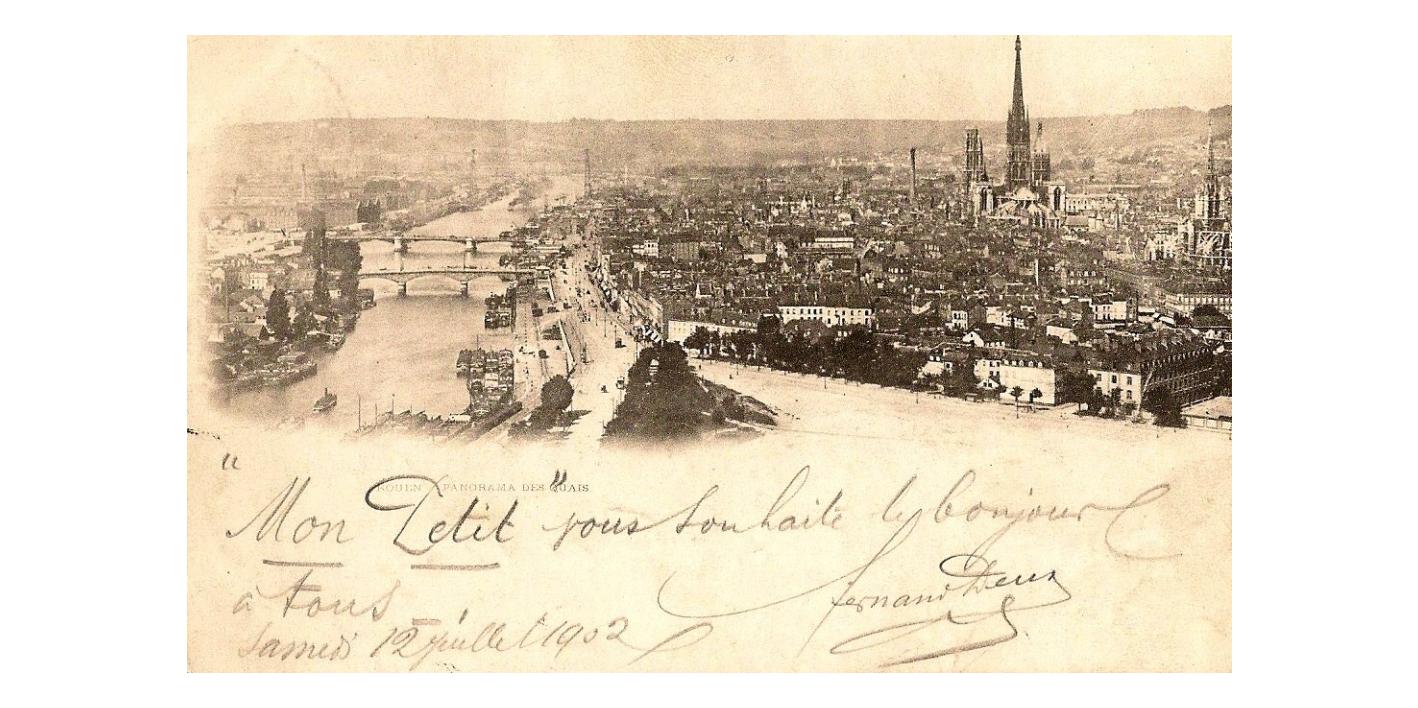 ROUEN - PANORAMA DES QUAIS
"Mon Petit" vous souhaite le bonjour
à tous
Fernand Deux
Samedi 12 juillet 1902